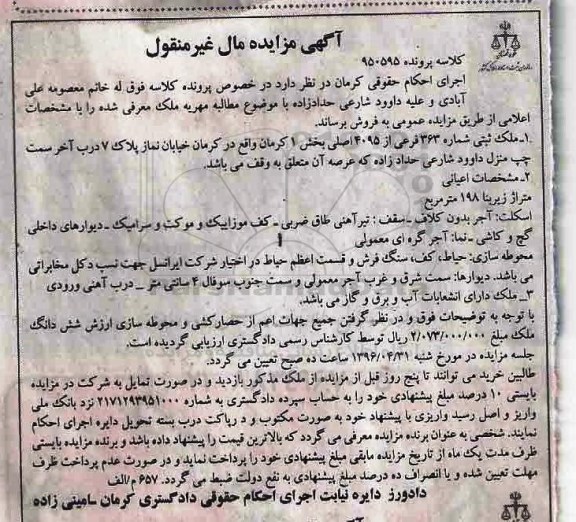 آگهی مزایده مال غیرمنقول
کلاسه پرونده ۹۵۰۵۹۵
اجرای احکام حقوقی کرمان در نظر دارد در خصوص پرونده کلاسه فوق له خانم معصومه علی
آبادی و علیه داوود شارعی حدادزاده با موضوع مطالبه مهریه ملک معرفی شده را با مشخصات
اعلامی از طریق مزایده عمومی به فروش برساند.
۱ـ ملک ثبتی شماره ۳۶۳ فرعی از ۴۰۹۵ اصلی بخش ۱ کرمان واقع در کرمان خیابان نماز پلاک ۷ درب آخر سمت
چپ منزل داوود شارعی حداد زاده که عرصه آن متعلق به وقف می باشد.
۲ـ مشخصات اعیانی
متراژ زیربنا ۱۹۸ مترمربع
اسکلت: آجر بدون کلاف ـ سقف : تیرآهنی طاق ضربی ـ کف موزاییک و موکت و سرامیک ـ دیوارهای داخلی
گچ و کاشی ـ نما: آجر گره ای معمولی
محوطه سازی: حیاط، کف، سنگ فرش و قسمت اعظم حیاط در اختیار شرکت ایرانسل جهت نسب دکل مخابراتی
می باشد. دیوارها: سمت شرق و غرب آجر معمولی و سمت جنوب سوفال ۴ سانتی متر ـ درب آهنی ورودی
۳ـ ملک دارای انشعابات آب و برق و گاز می باشد.
با توجه به توضیحات فوق و در نظر گرفتن جمیع جهات اعم از حصارکشی و محوطه سازی ارزش شش دانگ
ملک مبلغ ۲/۰۷۳/۰۰۰/۰۰۰ ریال توسط کارشناس رسمی دادگستری ارزیابی گردیده است.
جلسه مزایده در مورخ شنبه ۱۳۹۶/۰۴/۳۱ ساعت ده صبح تعیین می گردد.
طالبین خرید می توانند تا پنج روز قبل از مزایده از ملک مذکور بازدید و در صورت تمایل به شرکت در مزایده
بایستی ۱۰ درصد مبلغ پیشنهادی خود را به حساب سپرده دادگستری به شماره ۲۱۷۱۲۹۳۹۵۱۰۰۰ نزد بانک ملی
واریز و اصل رسید واریزی با پیشنهاد خود به صورت مکتوب و د رپاکت درب بسته تحویل دایره اجرای احکام
نمایند. شخصی به عنوان برنده مزایده معرفی می گردد که بالاترین قیمت را پیشنهاد داده باشد و برنده مزایده بایستی
ظرف مدت یک ماه از تاریخ مزایده مابقی مبلغ پیشنهادی خود را پرداخت نماید و در صورت عدم پرداخت ظرف
مهلت تعیین شده و یا انصراف ده درصد مبلغ پیشنهادی به نفع دولت ضبط می گردد. ۶۵۷ م/الف
دادورز دایره نیابت اجرای احکام حقوقی دادگستری کرمان ـ امینی زاده